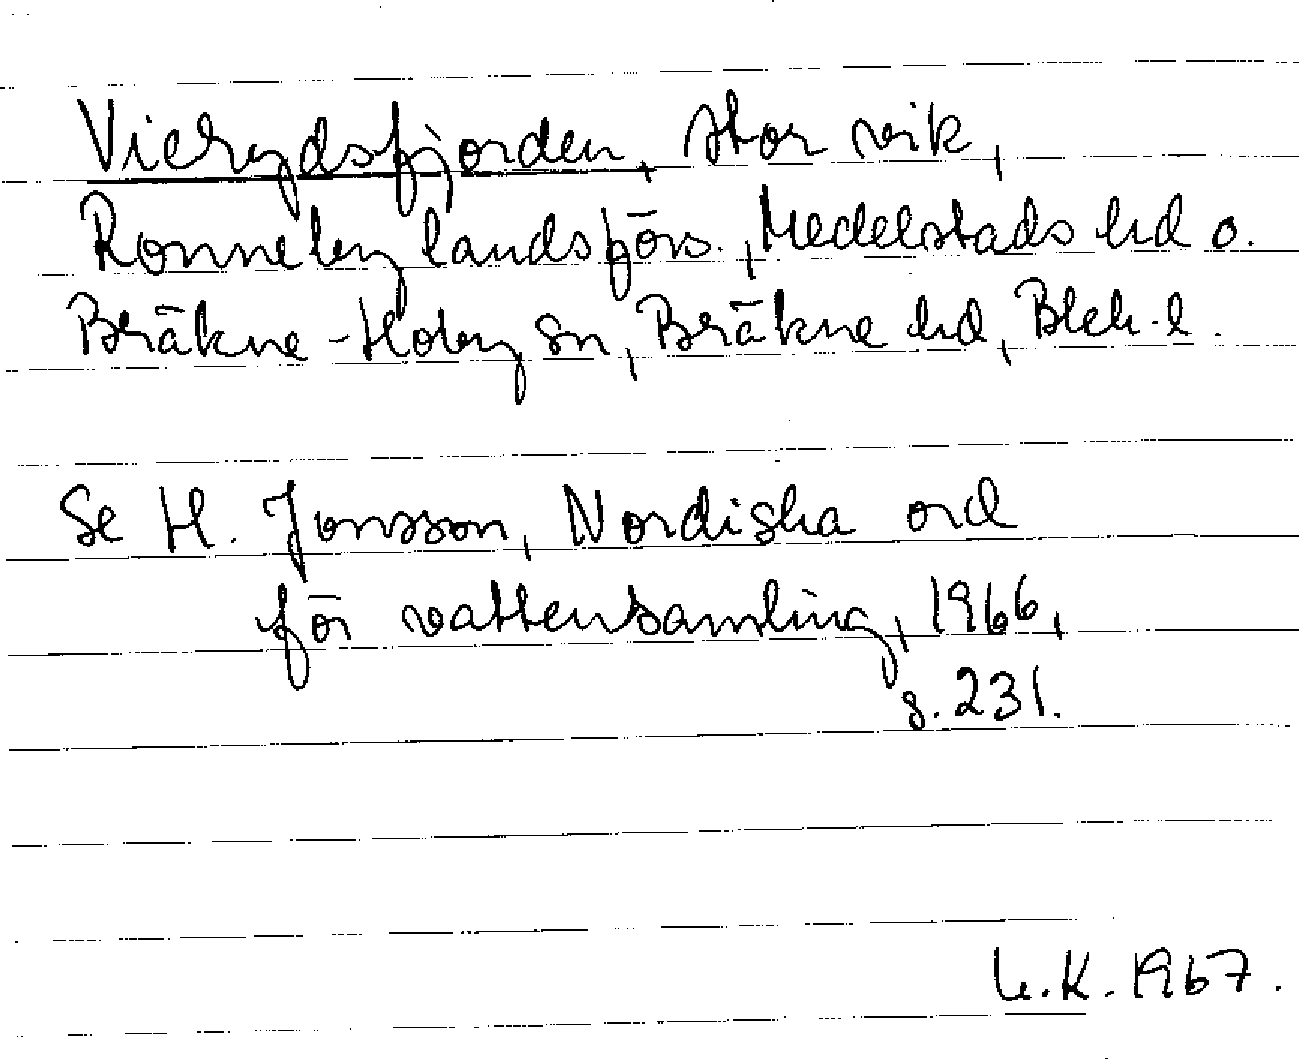 Vierydsfjorden, stor vik,
Ronneby landsförs., Medelstads hd o.
Bräkne-Hoby sn, Bräkne hd, Blek. l.
Se H. Jonsson, Nordiska ord
för vattensamling, 1966,
s. 231.
U.K. 1967.